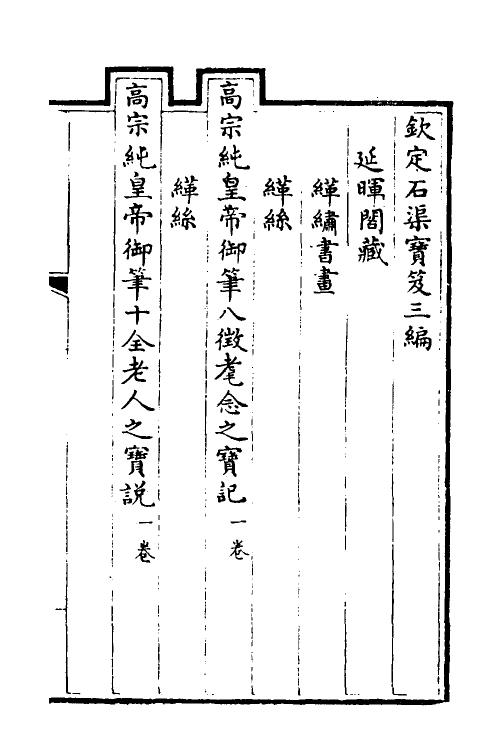 欽定石渠寳笈三編
延暉閣藏
緙繡書畫
緙絲
高宗純皇帝御筆八徴耄念之寳記一卷
緙絲
高宗純皇帝御筆十全老人之寳説一卷